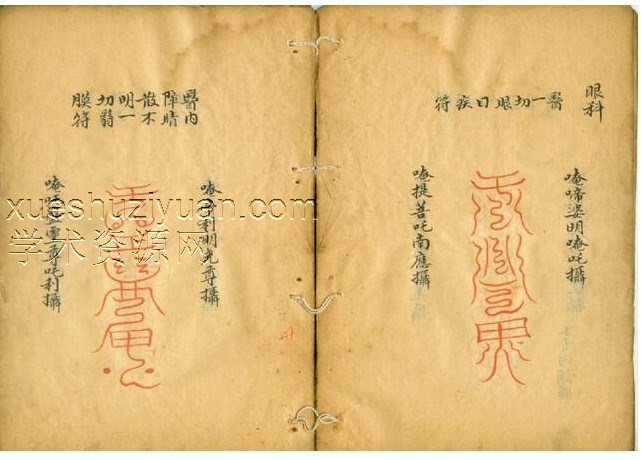 眼科
醫一切眼目疾符
唵啼婆明唵吒攝
唵提菩吒南應攝
醫內
障睛
散不
明一
切翳
膜符
唵利明光尊攝
唵靈尊吒利攝
xueshuziyuan.com
学术资源网